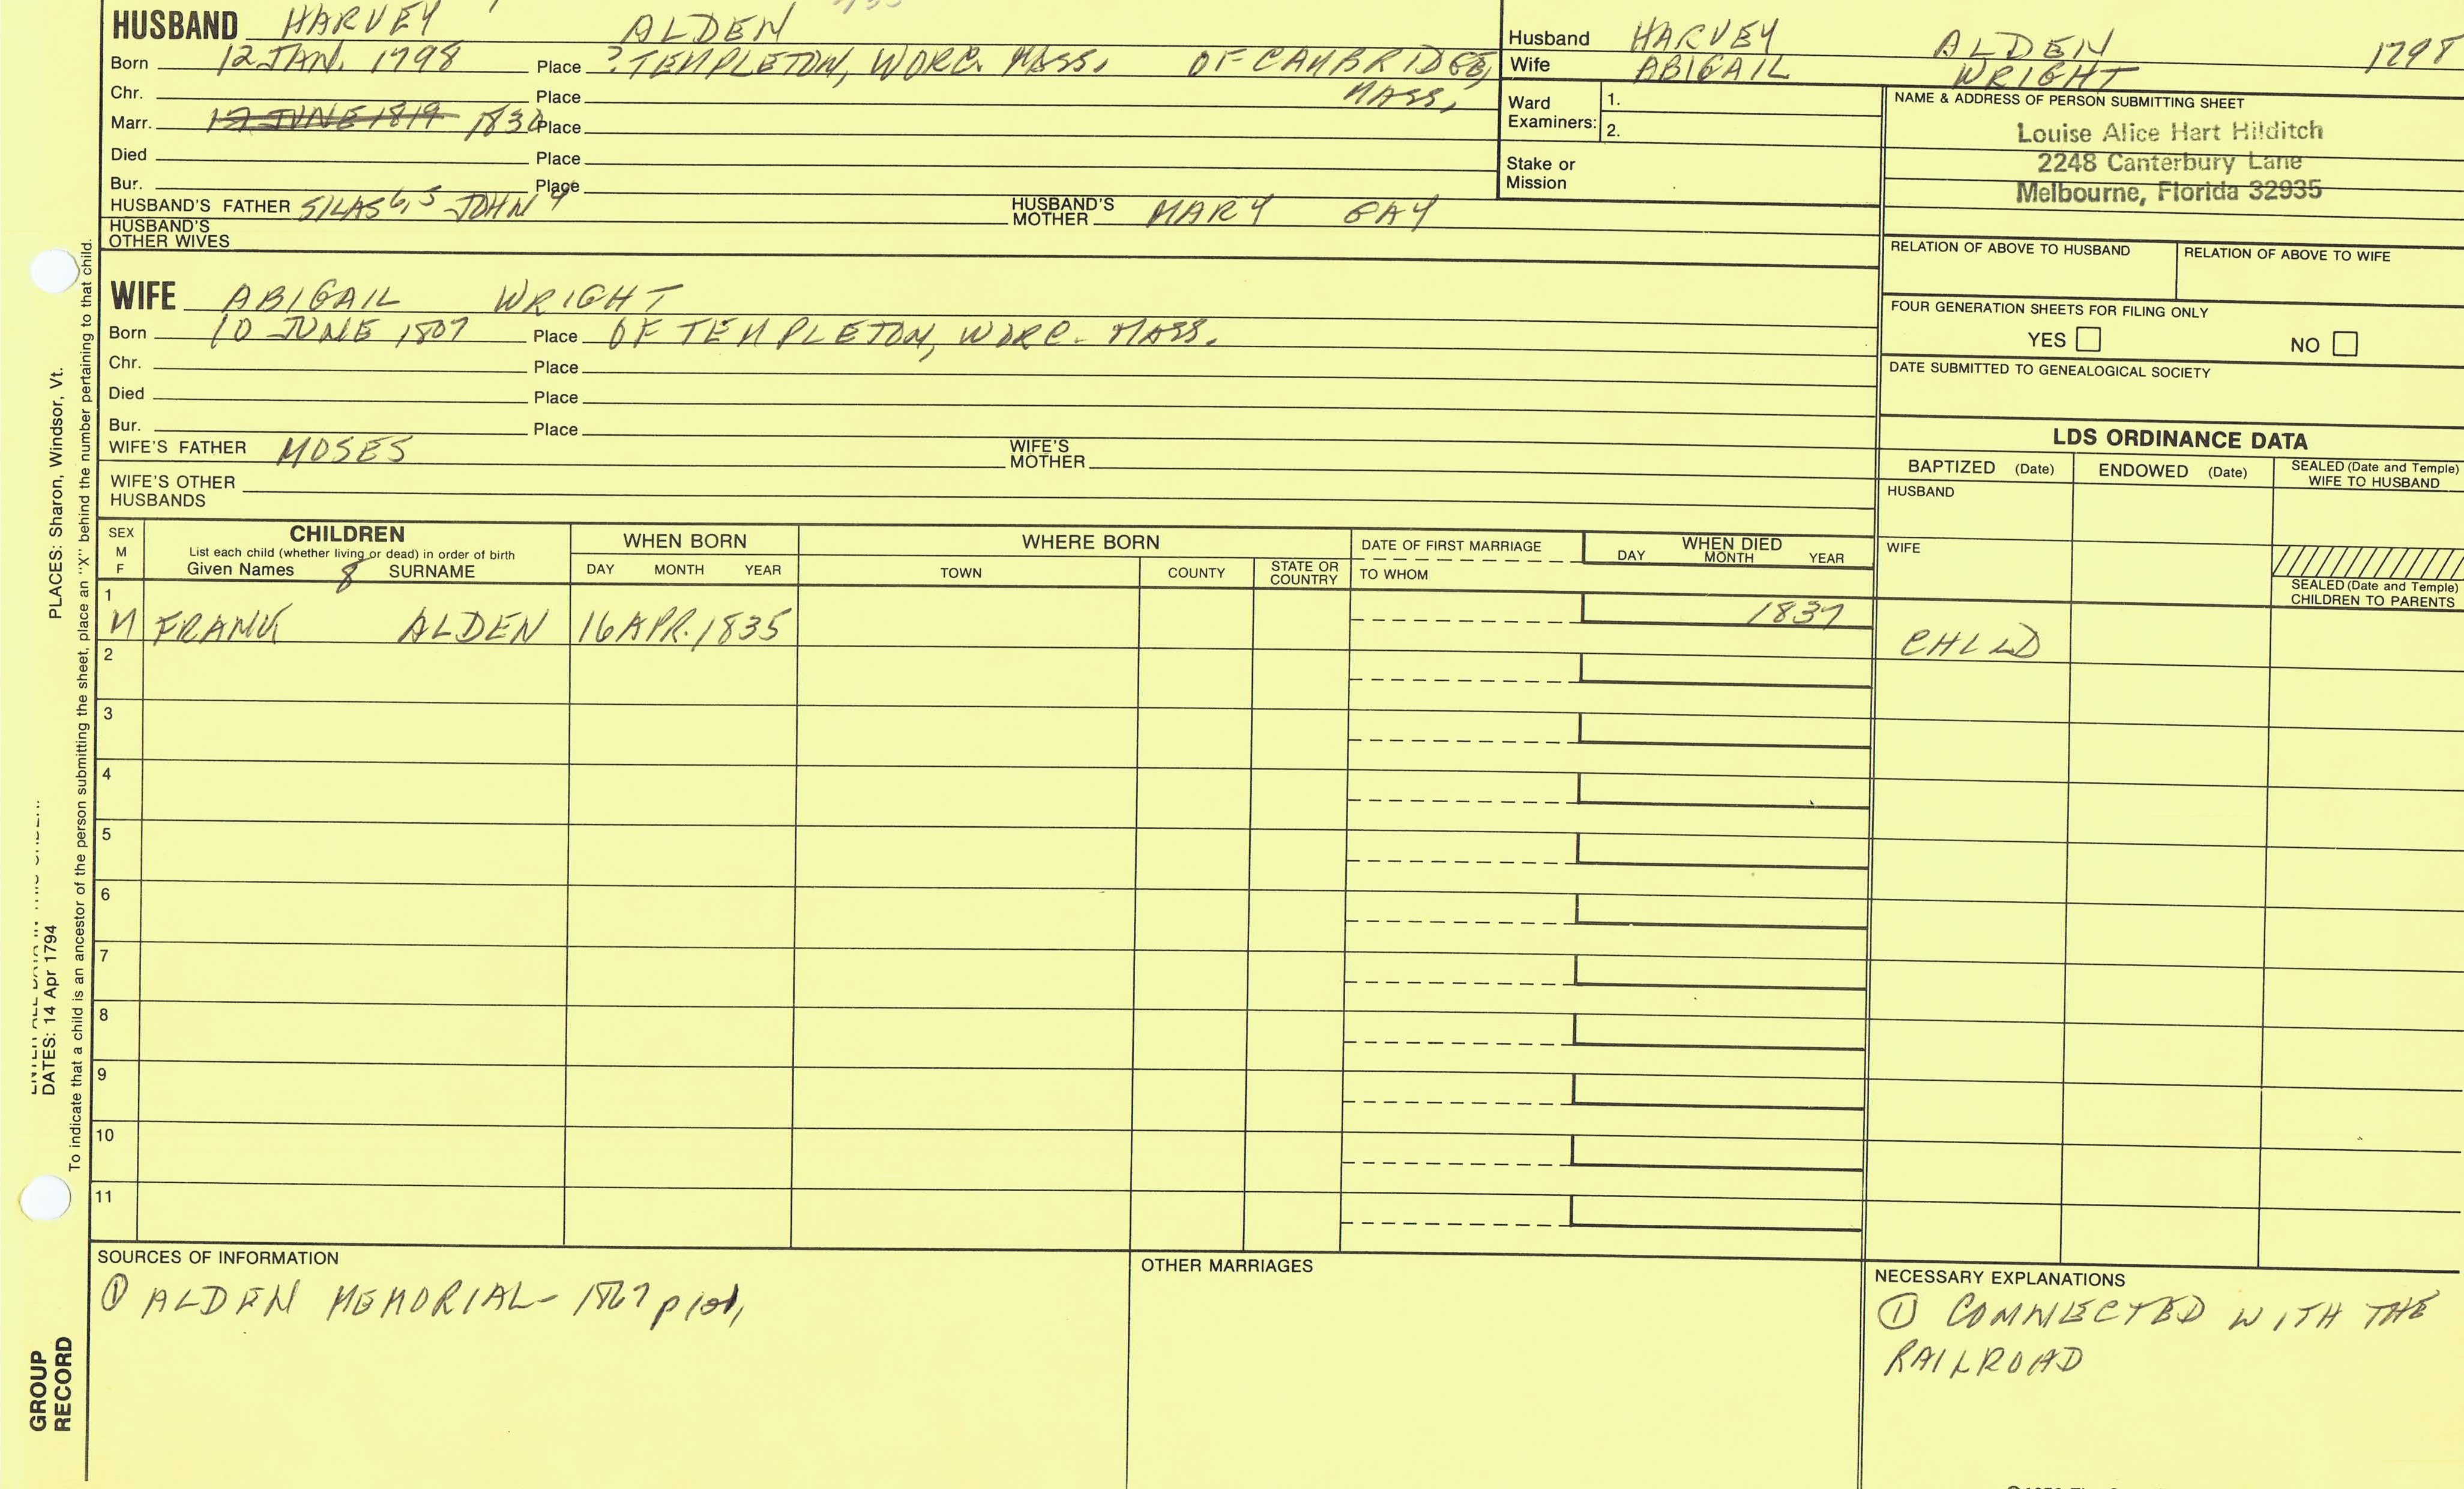 HUSBAND HARVEY ALDEN
Born 12 JAN. 1798 Place ?TEMPLETON, WORC. MASS. OF CAMBRIDGE,
Chr. Place MASS,
Marr. 12 JUNE 1819 Place
Died Place
Bur. Place
HUSBAND'S FATHER SILAS 6, 5 JOHN 4 HUSBAND'S MOTHER MARY GAY
HUSBAND'S OTHER WIVES
Husband HARVEY ALDEN 1798
Wife ABIGAIL WRIGHT
Ward Examiners: 1.
2.
Stake or Mission
NAME & ADDRESS OF PERSON SUBMITTING SHEET
Louise Alice Hart Hilditch
2248 Canterbury Lane
Melbourne, Florida 32935
RELATION OF ABOVE TO HUSBAND RELATION OF ABOVE TO WIFE
FOUR GENERATION SHEETS FOR FILING ONLY
YES NO
DATE SUBMITTED TO GENEALOGICAL SOCIETY
WIFE ABIGAIL WRIGHT
Born 10 JUNE 1807 Place OF TEMPLETON, WORC. MASS.
Chr. Place
Died Place
Bur. Place
WIFE'S FATHER MOSES WIFE'S MOTHER
WIFE'S OTHER HUSBANDS
LDS ORDINANCE DATA
BAPTIZED (Date) ENDOWED (Date) SEALED (Date and Temple) WIFE TO HUSBAND
HUSBAND
WIFE
SEALED (Date and Temple) CHILDREN TO PARENTS
SEX M F
CHILDREN
List each child (whether living or dead) in order of birth
Given Names 8 SURNAME
WHEN BORN
DAY MONTH YEAR
WHERE BORN
TOWN COUNTY STATE OR COUNTRY
DATE OF FIRST MARRIAGE
TO WHOM
WHEN DIED
DAY MONTH YEAR
1
M FRANK ALDEN 16 APR. 1835 1837 CHILD
2
3
4
5
6
7
8
9
10
11
SOURCES OF INFORMATION
① ALDEN MEMORIAL- 1867
OTHER MARRIAGES
NECESSARY EXPLANATIONS
① CONNECTED WITH THE
RAILROAD
PLACES: Sharon, Windsor, Vt.
DATES: 14 Apr 1794
To indicate that a child is an ancestor of the person submitting the sheet, place an "X" behind the number pertaining to that child.
GROUP
RECORD